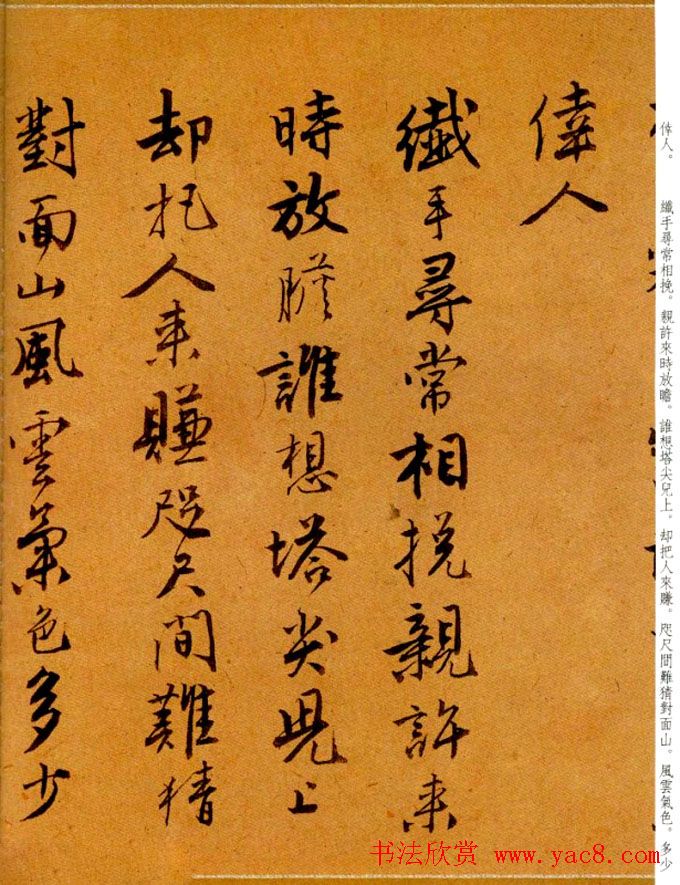 倖人。 纖手尋常相挽。親許來時放瞻。誰想塔尖兒上。却把人來賺。咫尺間難猜對面山。風雲氣色。多少
偉人
纖手尋常相挽親許来
時放膽誰想塔尖兒上
却把人来賺咫尺間難猜
對面山風雲氣色多少
书法欣赏 www.yac8.com